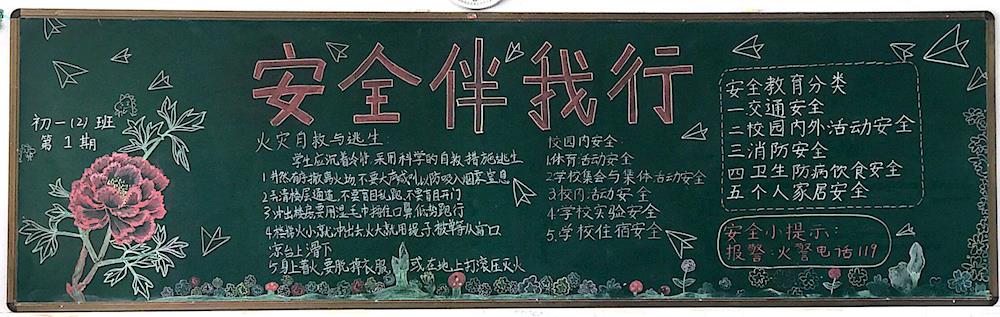 安全伴我行
初一(2)班
第1期
火灾自救与逃生:
学生应沉着冷静 采用科学的自救措施逃生
1.井然有序撤离火场,不要大声喊叫以防吸入烟雾窒息
2.弄清楼层通道,不要盲目乱跑,不要盲目开门
3.冲出楼层要用湿毛巾捂住口鼻,低势跑行
4.楼梯火小就冲出去,火大就用绳子,被单等从窗口
凉台上滑下
5.身上着火,要脱掉衣服 或在地上打滚压灭火
校园内安全:
1.体育活动安全
2.学校集会与集体活动安全
3.校内活动安全
4.学校实验安全
5.学校住宿安全
安全教育分类
一交通安全
二校园内外活动安全
三消防安全
四卫生防病饮食安全
五个人家居安全
安全小提示:
报警:火警电话119